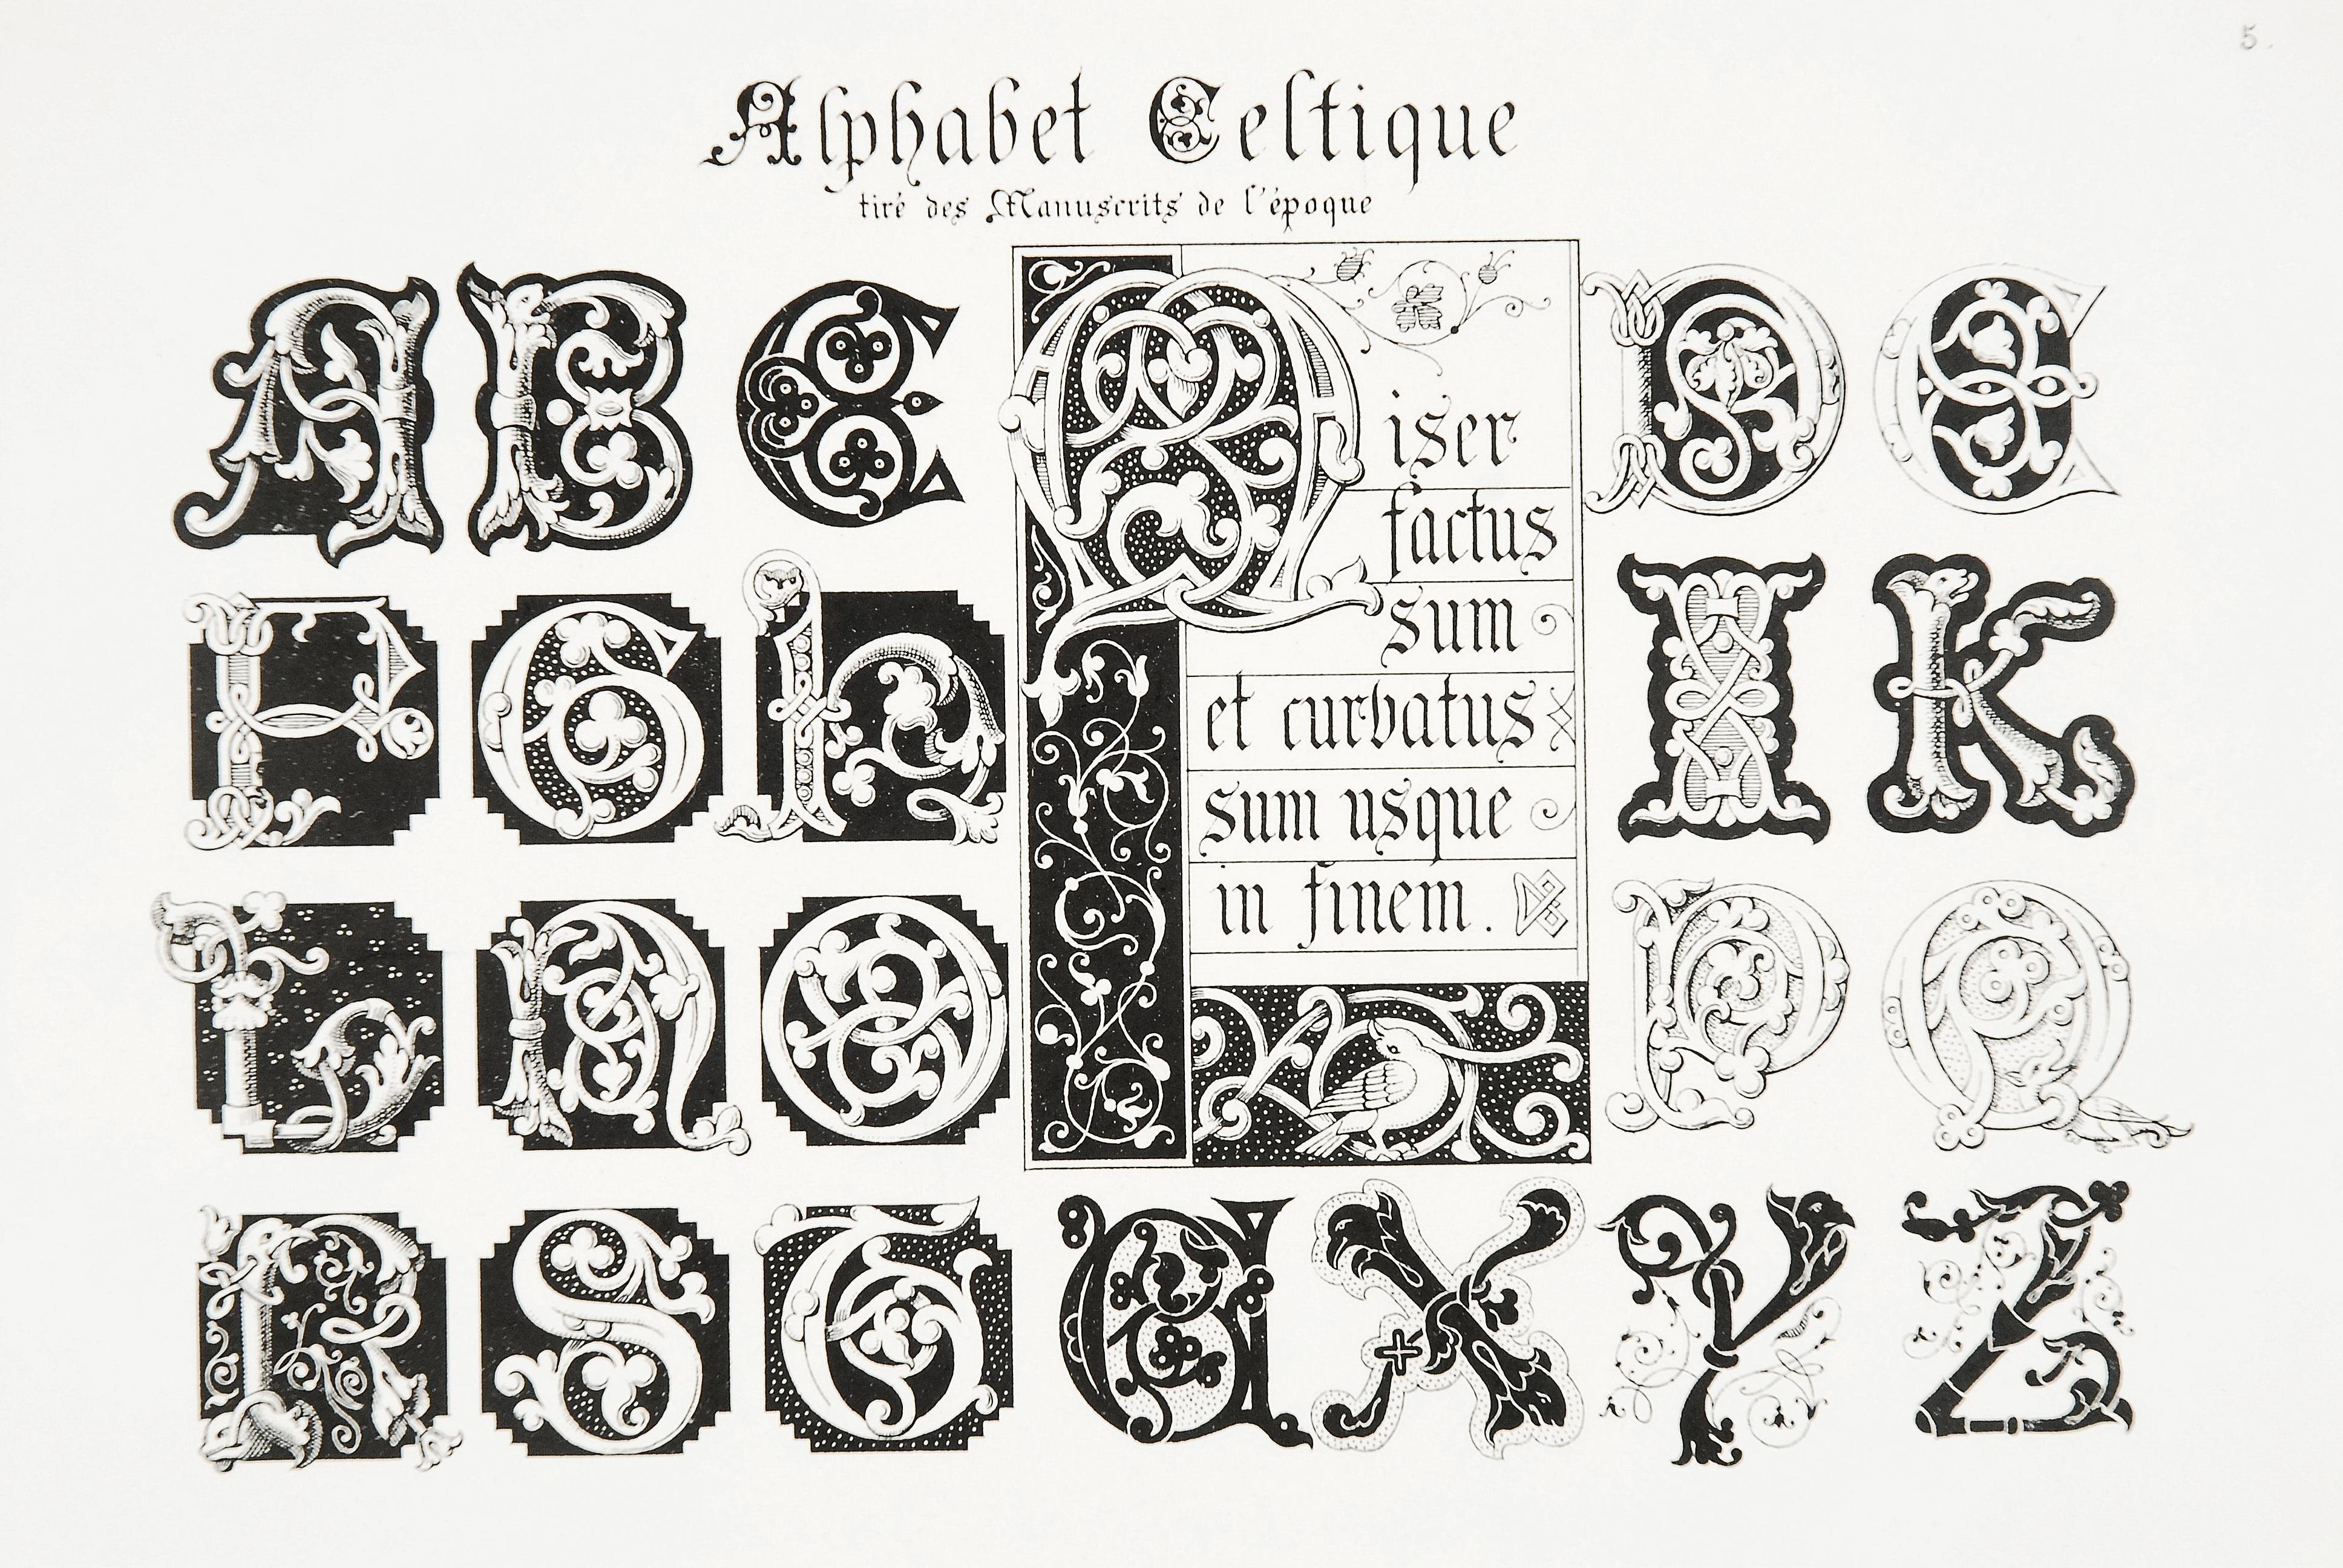 5.
Alphabet Celtique
tiré des Manuscrits de l'époque
A B C D E
Miser
factus
sum
et curvatus
sum usque
in finem.
F G h I K
L N O P Q
R S T U X Y Z